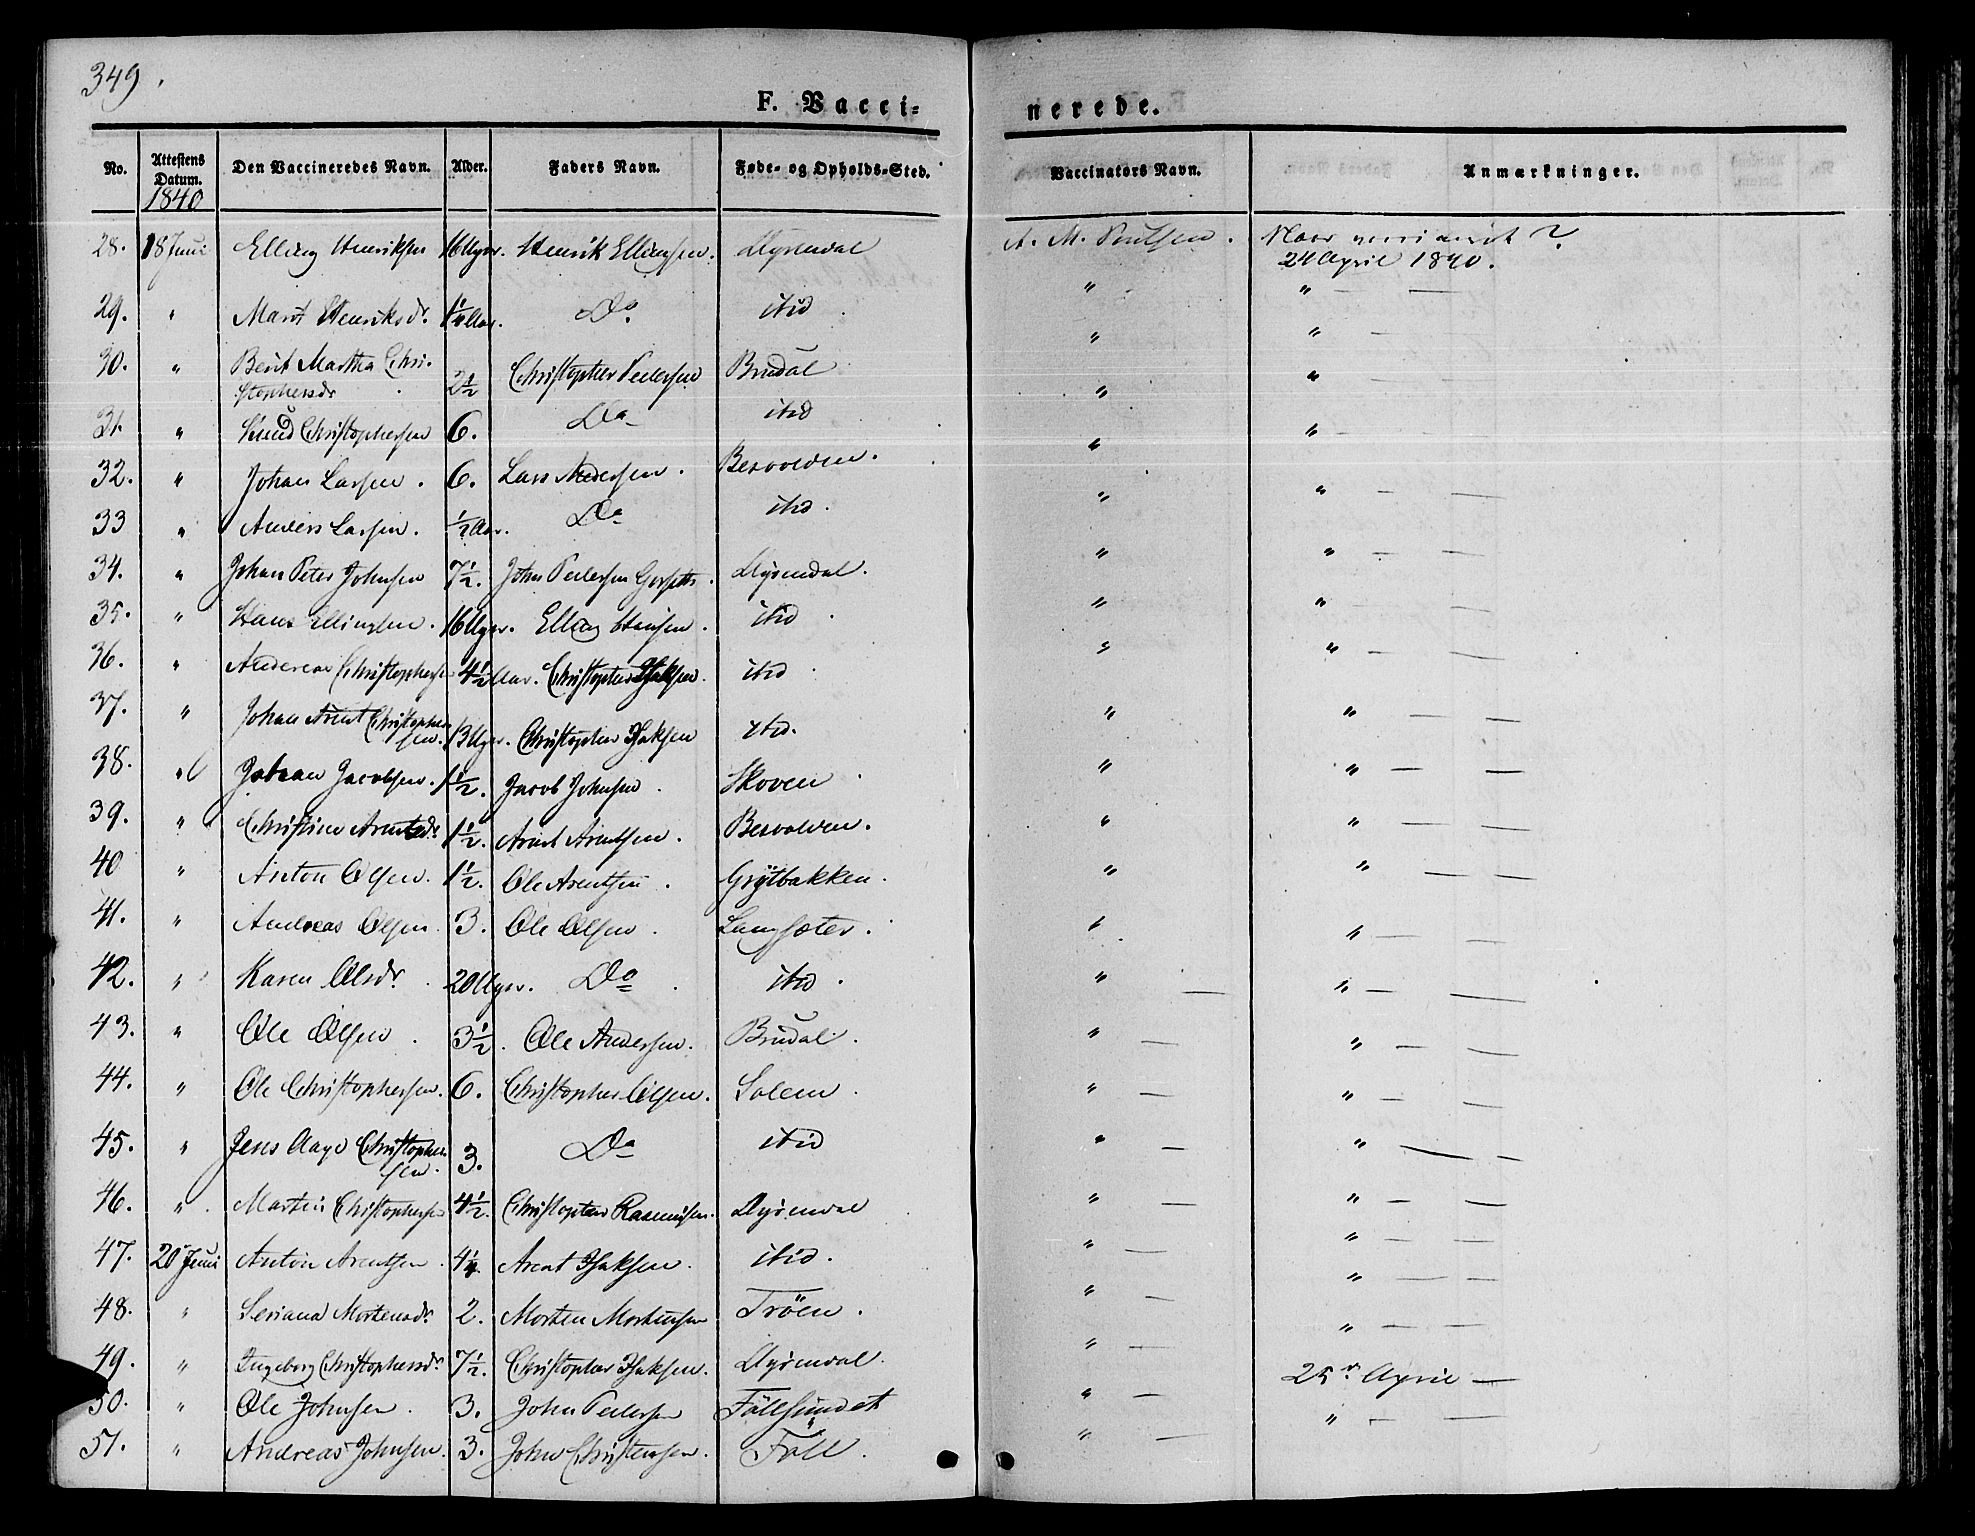 349.
F. Vacci-
nerede.
No. Attestens Datum. Den Vaccineredes Navn. Alder. Faders Navn. Føde- og Opholds-Sted. Vaccinators Navn. Anmærkninger.
1840
28. 18 Juni Elling Henriksen 16 Uger. Henrik Ellingsen. Dyrendal A. M. Poulsen.
24 April 1840.
29. " Marit Henriksdr. 1¼ Aar. Do. itid " " — —
30. " Berit Martha Chri- 2½ Christopher Pedersen Brudal " " — —
stophersdr
31. " Knud Christophersen 6. Do itid " " — —
32. " Johan Larsen. 6. Lars Andersen. Besvolden. " " — —
33 " Anders Larsen. ½ Aar. Do itid. " " — —
34. " Johan Peter Johnsen 7½. John Pedersen Dyrendal. " " — —
35. " Hans Ellingsen. 16 Uger. Elling Hansen. itid " " — —
36. " Andereas Christophersen 4½ Aar. Christopher Isaksen. itid " " — —
37. " Johan Arent Christopher- 13 Uger. Christopher Isaksen itid. " " — —
sen.
38. " Johan Jacobsen. 1½. Jacob Johnsen. Skoven " " — —
39. " Christine Arentsdr. 1½. Arent Arentsen. Besvolden. " " — —
40 " Anton Olsen. 1½. Ole Arentsen. Grytbakken. " " — —
41. " Andreas Olsen. 3. Ole Olsen. Langsæter. " " — —
42. " Karen Olsdr. 20 Uger. Do itid. " — " — —
43. " Ole Olsen. 3½. Ole Andersen. Brudal. " — " — —
44. " Ole Christophersen. 6. Christopher Olsen. Solem. " — " — —
45. " Jens Aage Christopher- 3. Do itid " — " — —
sen.
46. " Martin Christophersen 4½. Christopher Rasmusen. Dyrendal " — " — —
47. 20 Juni Anton Arentsen. 4¼. Arent Isaksen. itid. " — " — —
48. " Seriana Mortensdr. 2. Morten Mortensen Trøen. " — " — —
49. " Ingeborg Christophersdr. 7½. Christopher Isaksen. Dyrendal. " — " — —
50. " Ole Johnsen. 3. John Pedersen Föllsundet " — 25 April —
51. " Andreas Johnsen. 3. John Christensen. Föll. " — " — —